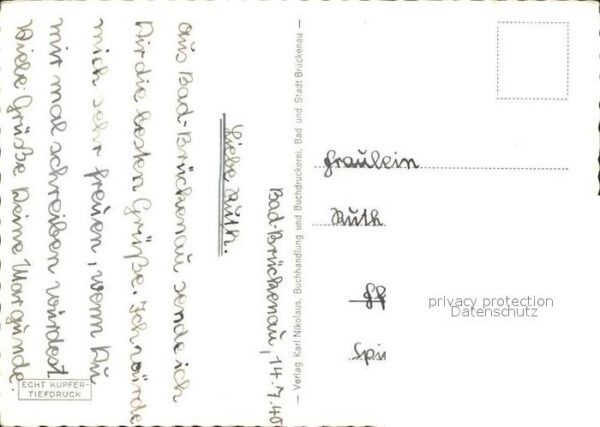 Bad-Brückenau, 14.7.40
Liebe Ruth.
aus Bad-Brückenau sende ich
Dir die besten Grüße. Ich würde
mich sehr freuen, wenn Du
mir mal schreiben würdest
Viele Grüße Deine Margünde.
— Verlag Karl Nikolaus, Buchhandlung und Buchdruckerei, Bad und Stadt Brückenau —
Fräulein
Ruth
privacy protection
Datenschutz
Spi
ECHT KUPFER-
TIEFDRUCK